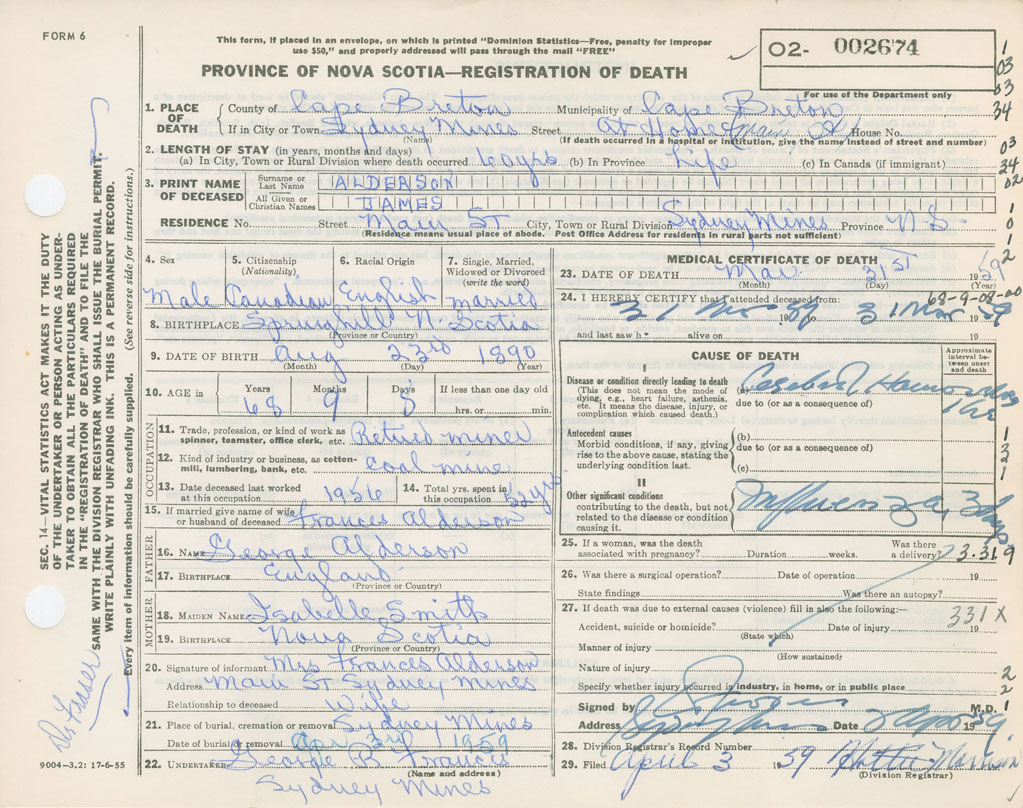 FORM 6
This form, if placed in an envelope, on which is printed "Dominion Statistics—Free, penalty for improper
use $50," and properly addressed will pass through the mail "FREE"
PROVINCE OF NOVA SCOTIA—REGISTRATION OF DEATH
02- 002674
For use of the Department only
1
03
03
34
03
34
02
1
0
1
2
1. PLACE OF DEATH
County of Cape Breton Municipality of Cape Breton
If in City or Town Sydney Mines Street At Home (Main St) House No.
(Name) (If death occurred in a hospital or institution, give the name instead of street and number)
2. LENGTH OF STAY (in years, months and days)
(a) In City, Town or Rural Division where death occurred 60 yrs (b) In Province Life (c) In Canada (if immigrant)
3. PRINT NAME OF DECEASED
Surname or Last Name ALDERSON
All Given or Christian Names JAMES
RESIDENCE No. Street Main ST City, Town or Rural Division Sydney Mines Province N S
(Residence means usual place of abode. Post Office Address for residents in rural parts not sufficient)
4. Sex 5. Citizenship (Nationality) 6. Racial Origin 7. Single, Married, Widowed or Divorced (write the word)
Male Canadian English married
8. BIRTHPLACE Springhill N. Scotia
(Province or Country)
9. DATE OF BIRTH Aug 23rd 1890
(Month) (Day) (Year)
10. AGE in Years Months Days If less than one day old
68 9 8 hrs. or min.
OCCUPATION
11. Trade, profession, or kind of work as spinner, teamster, office clerk, etc. Retired miner
12. Kind of industry or business, as cotton-mill, lumbering, bank, etc. Coal mine
13. Date deceased last worked at this occupation 1956 14. Total yrs. spent in this occupation 52 yrs
15. If married give name of wife or husband of deceased Frances Alderson
FATHER
16. NAME George Alderson
17. BIRTHPLACE England
(Province or Country)
MOTHER
18. MAIDEN NAME Isabelle Smith
19. BIRTHPLACE Nova Scotia
(Province or Country)
20. Signature of informant Mrs Frances Alderson
Address Main ST Sydney Mines
Relationship to deceased Wife
21. Place of burial, cremation or removal Sydney Mines
Date of burial or removal Apr 3rd 1959
22. UNDERTAKER George B Francis
(Name and address)
Sydney Mines
MEDICAL CERTIFICATE OF DEATH
23. DATE OF DEATH Mar. 31st 1959
(Month) (Day) (Year)
68-9-08-00
24. I HEREBY CERTIFY that I attended deceased from:
31 19 to 31 Mar 1959
and last saw h alive on 19
CAUSE OF DEATH
Approximate interval between onset and death
I
Disease or condition directly leading to death
(This does not mean the mode of dying, e.g., heart failure, asthenia, etc. It means the disease, injury, or complication which caused death.)
(a) Cerebral
due to (or as a consequence of)
Antecedent causes
Morbid conditions, if any, giving rise to the above cause, stating the underlying condition last.
(b)
due to (or as a consequence of)
(c)
1
3
2
1
II
Other significant conditions
contributing to the death, but not related to the disease or condition causing it.
Influenza 3 days
25. If a woman, was the death associated with pregnancy? Duration weeks. Was there a delivery?
3.31.9
26. Was there a surgical operation? Date of operation 19
State findings Was there an autopsy?
27. If death was due to external causes (violence) fill in also the following:—
331 X
Accident, suicide or homicide? Date of injury 19
(State which)
Manner of injury
(How sustained)
Nature of injury
2
2
1
Specify whether injury occurred in industry, in home, or in public place
Signed by M.D.
Address Sydney Mines Date 2 Apr 1959
28. Division Registrar's Record Number
29. Filed April 3 1959 Hattie
(Division Registrar)
SEC. 14—VITAL STATISTICS ACT MAKES IT THE DUTY
OF THE UNDERTAKER OR PERSON ACTING AS UNDER-
TAKER TO OBTAIN ALL THE PARTICULARS REQUIRED
IN THE "REGISTRATION OF DEATH" AND TO FILE THE
SAME WITH THE DIVISION REGISTRAR WHO SHALL ISSUE THE BURIAL PERMIT.
WRITE PLAINLY WITH UNFADING INK. THIS IS A PERMANENT RECORD.
Every item of information should be carefully supplied. (See reverse side for instructions.)
Dr Fraser
9004-3.2: 17-6-55